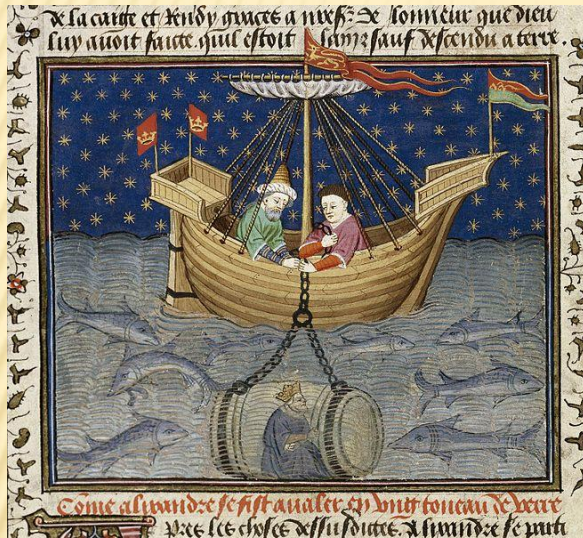 de la caige et rendy graces a nre s2 de lonneur que dieu
luy auoit faicte quil estoit sain2 sauf descendu a terre
Cōme alixandre se fist aualer en vng touneau de verre
pres les choses dessusdictes. Alixandre se parti